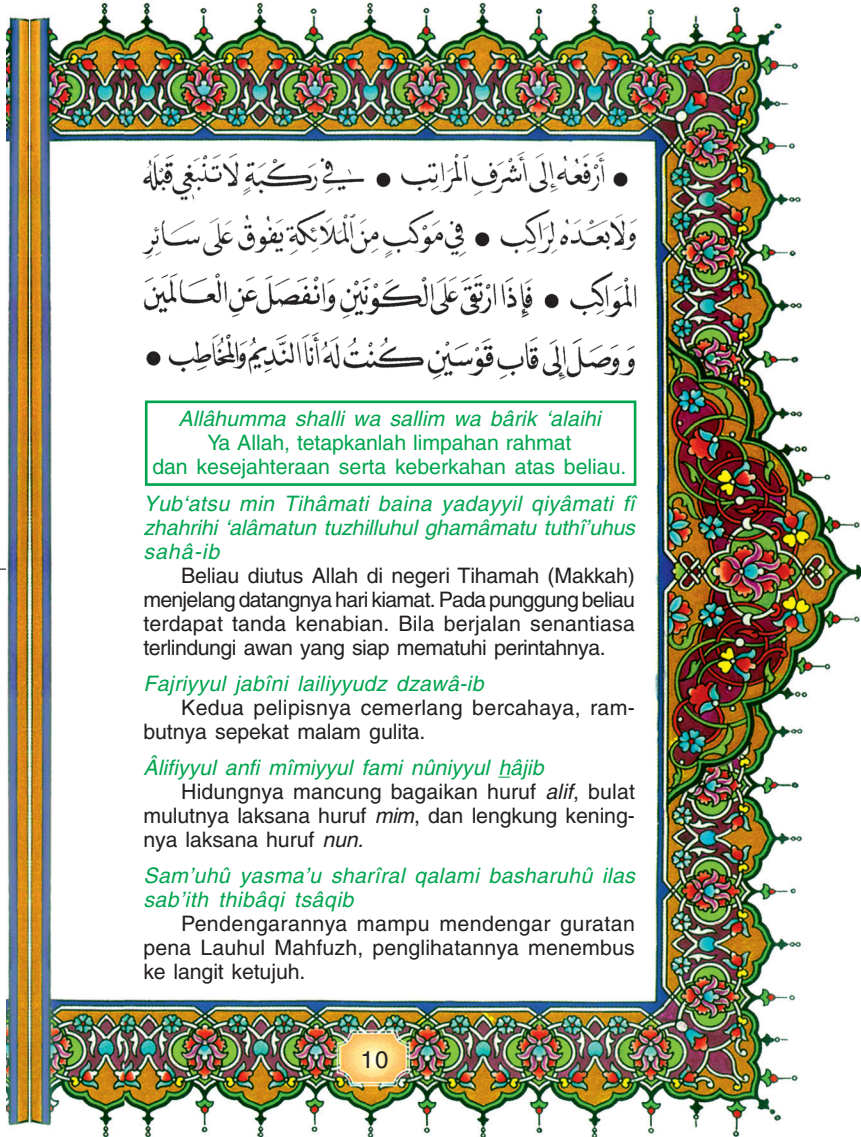 ● أَرْفَعُهُ إِلَى أَشْرَفِ ٱلْمَرَاتِب ● فِي رَكْبَةٍ لَاتَنْبَغِي قَبْلَهُ
وَلَابَعْدَهُ لِرَاكِب ● فِي مَوْكَبٍ مِنَ ٱلْمَلَائِكَةِ يَفُوقُ عَلَى سَائِرِ
الْمَوَاكِب ● فَإِذَا ارْتَقَى عَلَى الْكَوْنَيْنِ وَانْفَصَلَ عَنِ الْعَالَمَيْنَ
وَوَصَلَ إِلَى قَابِ قَوْسَيْنِ كُنْتُ لَهُ أَنَا النَّدِيمُ وَالْمُخَاطِب ●
Allâhumma shalli wa sallim wa bârik ‘alaihi
Ya Allah, tetapkanlah limpahan rahmat
dan kesejahteraan serta keberkahan atas beliau.
Yub‘atsu min Tihâmati baina yadayyil qiyâmati fî
zhahrihi ‘alâmatun tuzhilluhul ghamâmatu tuthî’uhus
sahâ-ib
Beliau diutus Allah di negeri Tihamah (Makkah)
menjelang datangnya hari kiamat. Pada punggung beliau
terdapat tanda kenabian. Bila berjalan senantiasa
terlindungi awan yang siap mematuhi perintahnya.
Fajriyyul jabîni lailiyyudz dzawâ-ib
Kedua pelipisnya cemerlang bercahaya, ram-
butnya sepekat malam gulita.
Âlifiyyul anfi mîmiyyul fami nûniyyul hâjib
Hidungnya mancung bagaikan huruf alif, bulat
mulutnya laksana huruf mim, dan lengkung kening-
nya laksana huruf nun.
Sam’uhû yasma’u sharîral qalami basharuhû ilas
sab’ith thibâqi tsâqib
Pendengarannya mampu mendengar guratan
pena Lauhul Mahfuzh, penglihatannya menembus
ke langit ketujuh.
10